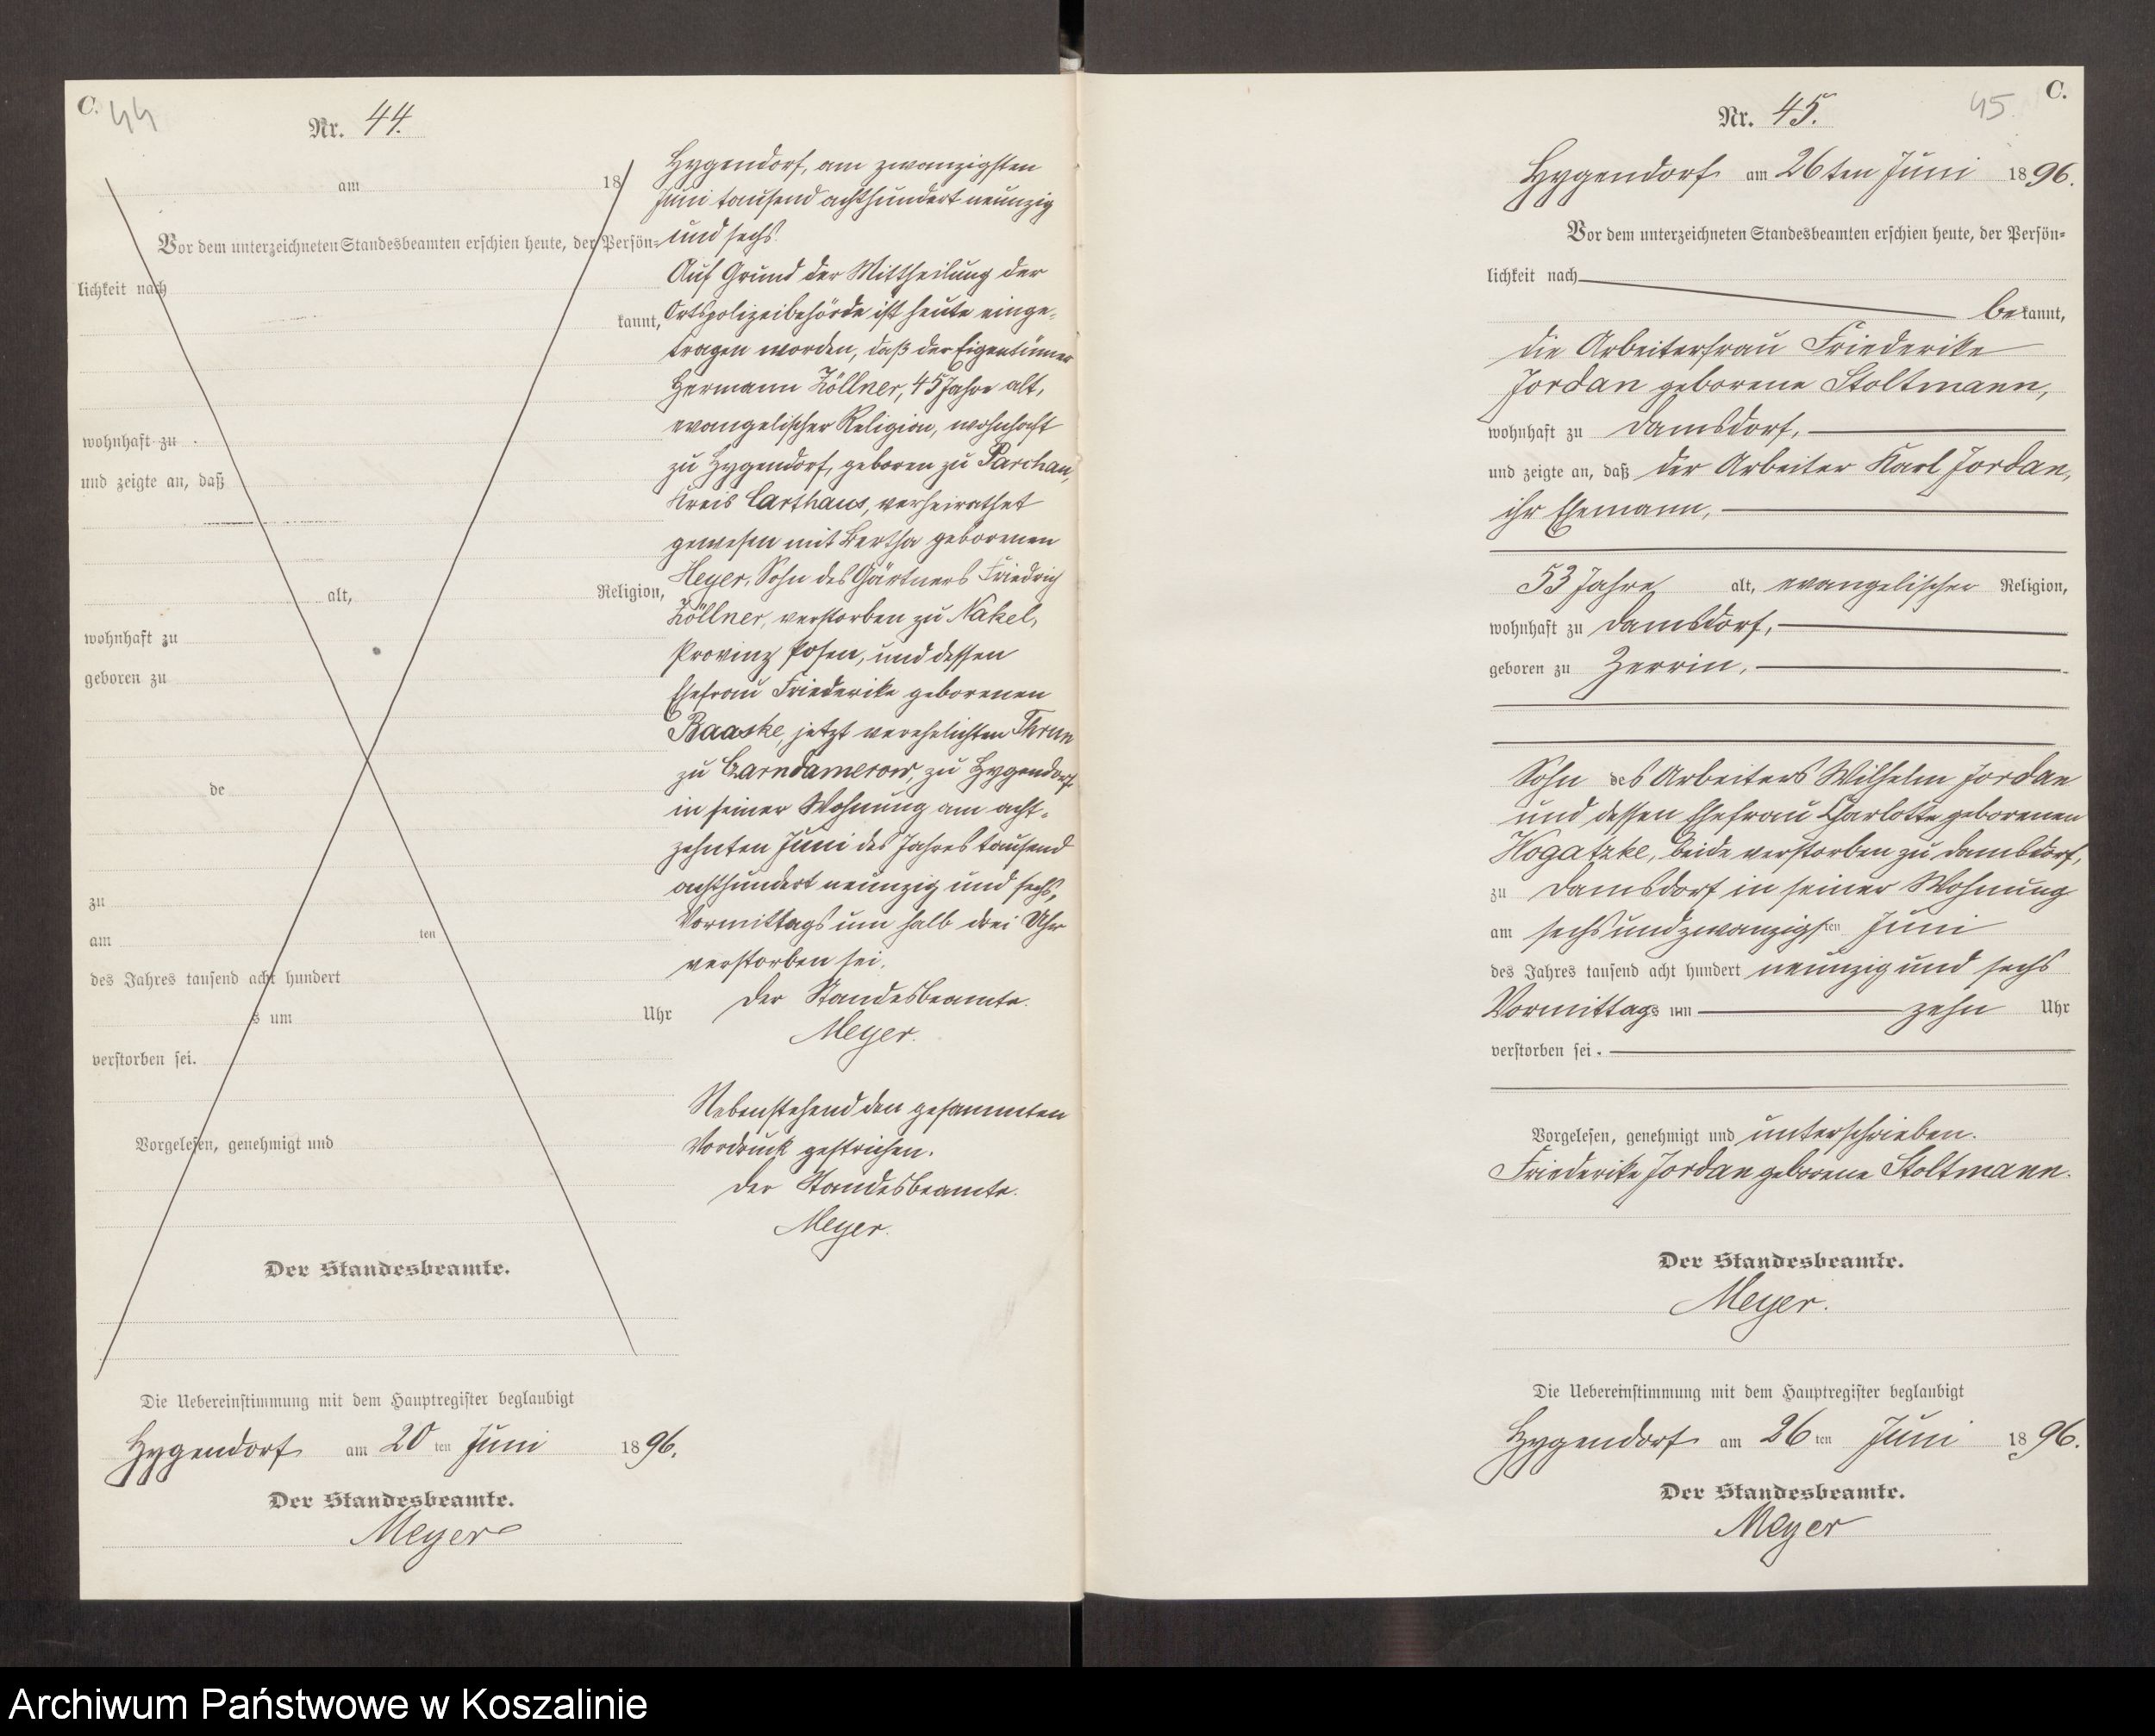 C. 44
Nr. 44.
am 18
Vor dem unterzeichneten Standesbeamten erschien heute, der Persön=
lichkeit nach
kannt,
wohnhaft zu
und zeigte an, daß
alt, Religion,
wohnhaft zu
geboren zu
de
zu
am ten
des Jahres tausend acht hundert
s um Uhr
verstorben sei.
Vorgelesen, genehmigt und
Der Standesbeamte.
Die Uebereinstimmung mit dem Hauptregister beglaubigt
Hygendorf am 20 ten Juni 1896.
Der Standesbeamte.
Meyer
Hygendorf, am zwanzigsten
Juni tausend achthundert neunzig
und sechs.
Auf Grund der Mittheilung der
Ortspolizeibehörde ist heute einge-
tragen worden, daß der Eigentümer
Hermann Zöllner, 45 Jahre alt,
evangelischer Religion, wohnhaft
zu Hygendorf, geboren zu Parchau,
Kreis Carthaus, verheirathet
gewesen mit Bertha geborenen
Heyer, Sohn des Gärtners Friedrich
Zöllner, verstorben zu Nakel,
Provinz Posen, und dessen
Ehefrau Friederike geborenen
Baaske, jetzt verehelichten Thrun
zu Czarndamerow, zu Hygendorf
in seiner Wohnung am acht-
zehnten Juni des Jahres tausend
achthundert neunzig und sechs,
Vormittags um halb drei Uhr
verstorben sei.
Der Standesbeamte.
Meyer.
Nebenstehend den gesammten
Vordruck gestrichen.
Der Standesbeamte.
Meyer.
C.
45
Nr. 45.
Hygendorf am 26ten Juni 1896.
Vor dem unterzeichneten Standesbeamten erschien heute, der Persön=
lichkeit nach
bekannt,
die Arbeiterfrau Friederike
Jordan geborene Stoltmann,
wohnhaft zu Damsdorf,
und zeigte an, daß der Arbeiter Karl Jordan,
ihr Ehemann,
53 Jahre alt, evangelischer Religion,
wohnhaft zu Damsdorf,
geboren zu Zerrin,
Sohn des Arbeiters Wilhelm Jordan
und dessen Ehefrau Charlotte geborenen
Rogatzke, beide verstorben zu Damsdorf,
zu Damsdorf in seiner Wohnung
am sechsundzwanzigsten Juni
des Jahres tausend acht hundert neunzig und sechs
Vormittags um zehn Uhr
verstorben sei.
Vorgelesen, genehmigt und unterschrieben.
Friederike Jordan geborene Stoltmann.
Der Standesbeamte.
Meyer.
Die Uebereinstimmung mit dem Hauptregister beglaubigt
Hygendorf am 26 ten Juni 1896.
Der Standesbeamte.
Meyer
Archiwum Państwowe w Koszalinie